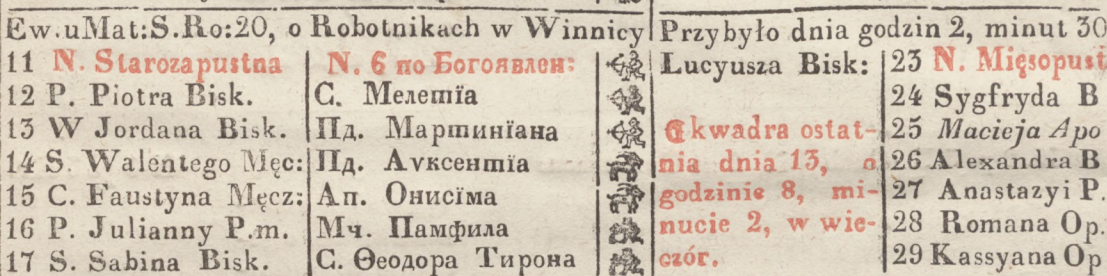 Ew.uMat:S.Ro:20, o Robotnikach w Winnicy Przybyło dnia godzin 2, minut 30
11 N. Starozapustna N. 6 по Богоявлен: Lucyusza Bisk: 23 N. Mięsopust
12 P. Piotra Bisk. С. Мелетїа 24 Sygfryda B
13 W Jordana Bisk. Пд. Мартинїана kwadra ostat- 25 Macieja Apo
14 S. Walentego Męc: Пд. Аѵксентїа nia dnia 13, o 26 Alexandra B
15 C. Faustyna Męcz: Ап. Онисїма godzinie 8, mi- 27 Anastazyi P.
16 P. Julianny P.m. Мч. Памфила nucie 2, w wie- 28 Romana Op.
17 S. Sabina Bisk. С. Ѳеодора Тирона czór. 29 Kassyana Op